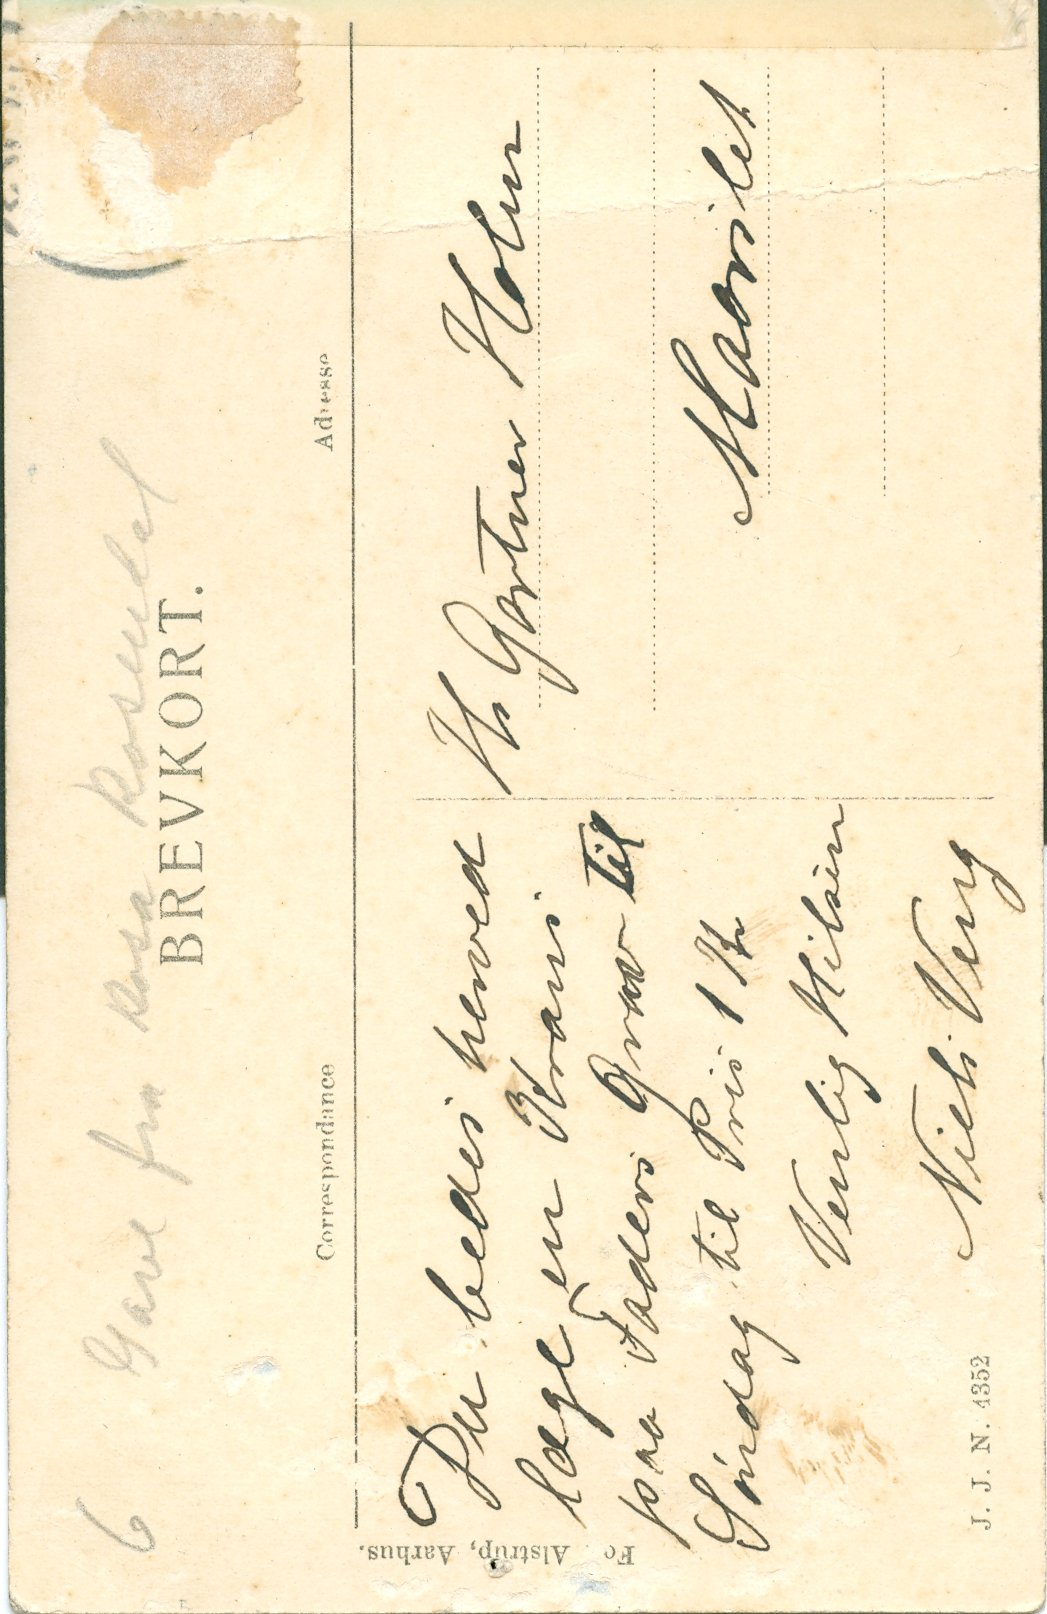 6 Gave fra Rosa Rosendal
BREVKORT.
Correspondance
Adresse
Du bedes herved
lægge en Krans
paa Faders Grav til
Søndag til Pris 1 Kr
Venlig Hilsen
Niels Veng
Hr Gartner Holm
Maarslet
J. J. N. 4352
Alstrup, Aarhus.